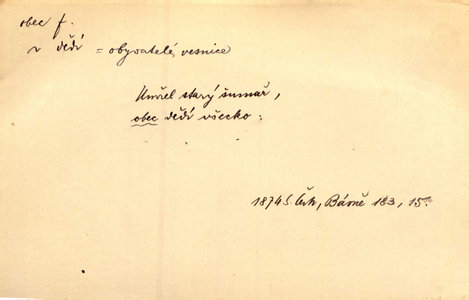 obec f.
~ dědí = obyvatelé, vesnice
Umřel starý šumař,
obec dědí všecko.
1874 S. Čech, Básně 183, 15.